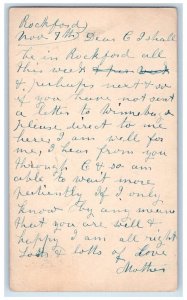 Rockford
Nov 7th Dear C I shall
be in Rockford all
this week
& perhaps next & so
if you have not sent
a letter to Winnebago
please direct to me
here I am well for
me I hear from you
through C & so am
able to wait more
patiently if I only
know by any means
that you are well &
happy I am all right
Lots & lots of love
Mother